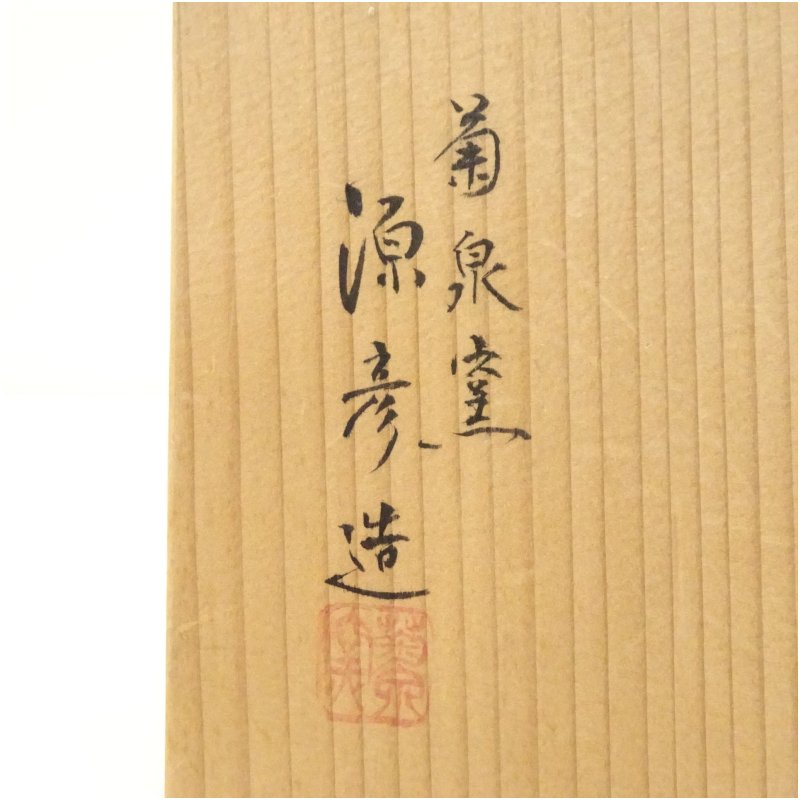 菊泉窯
源彦造